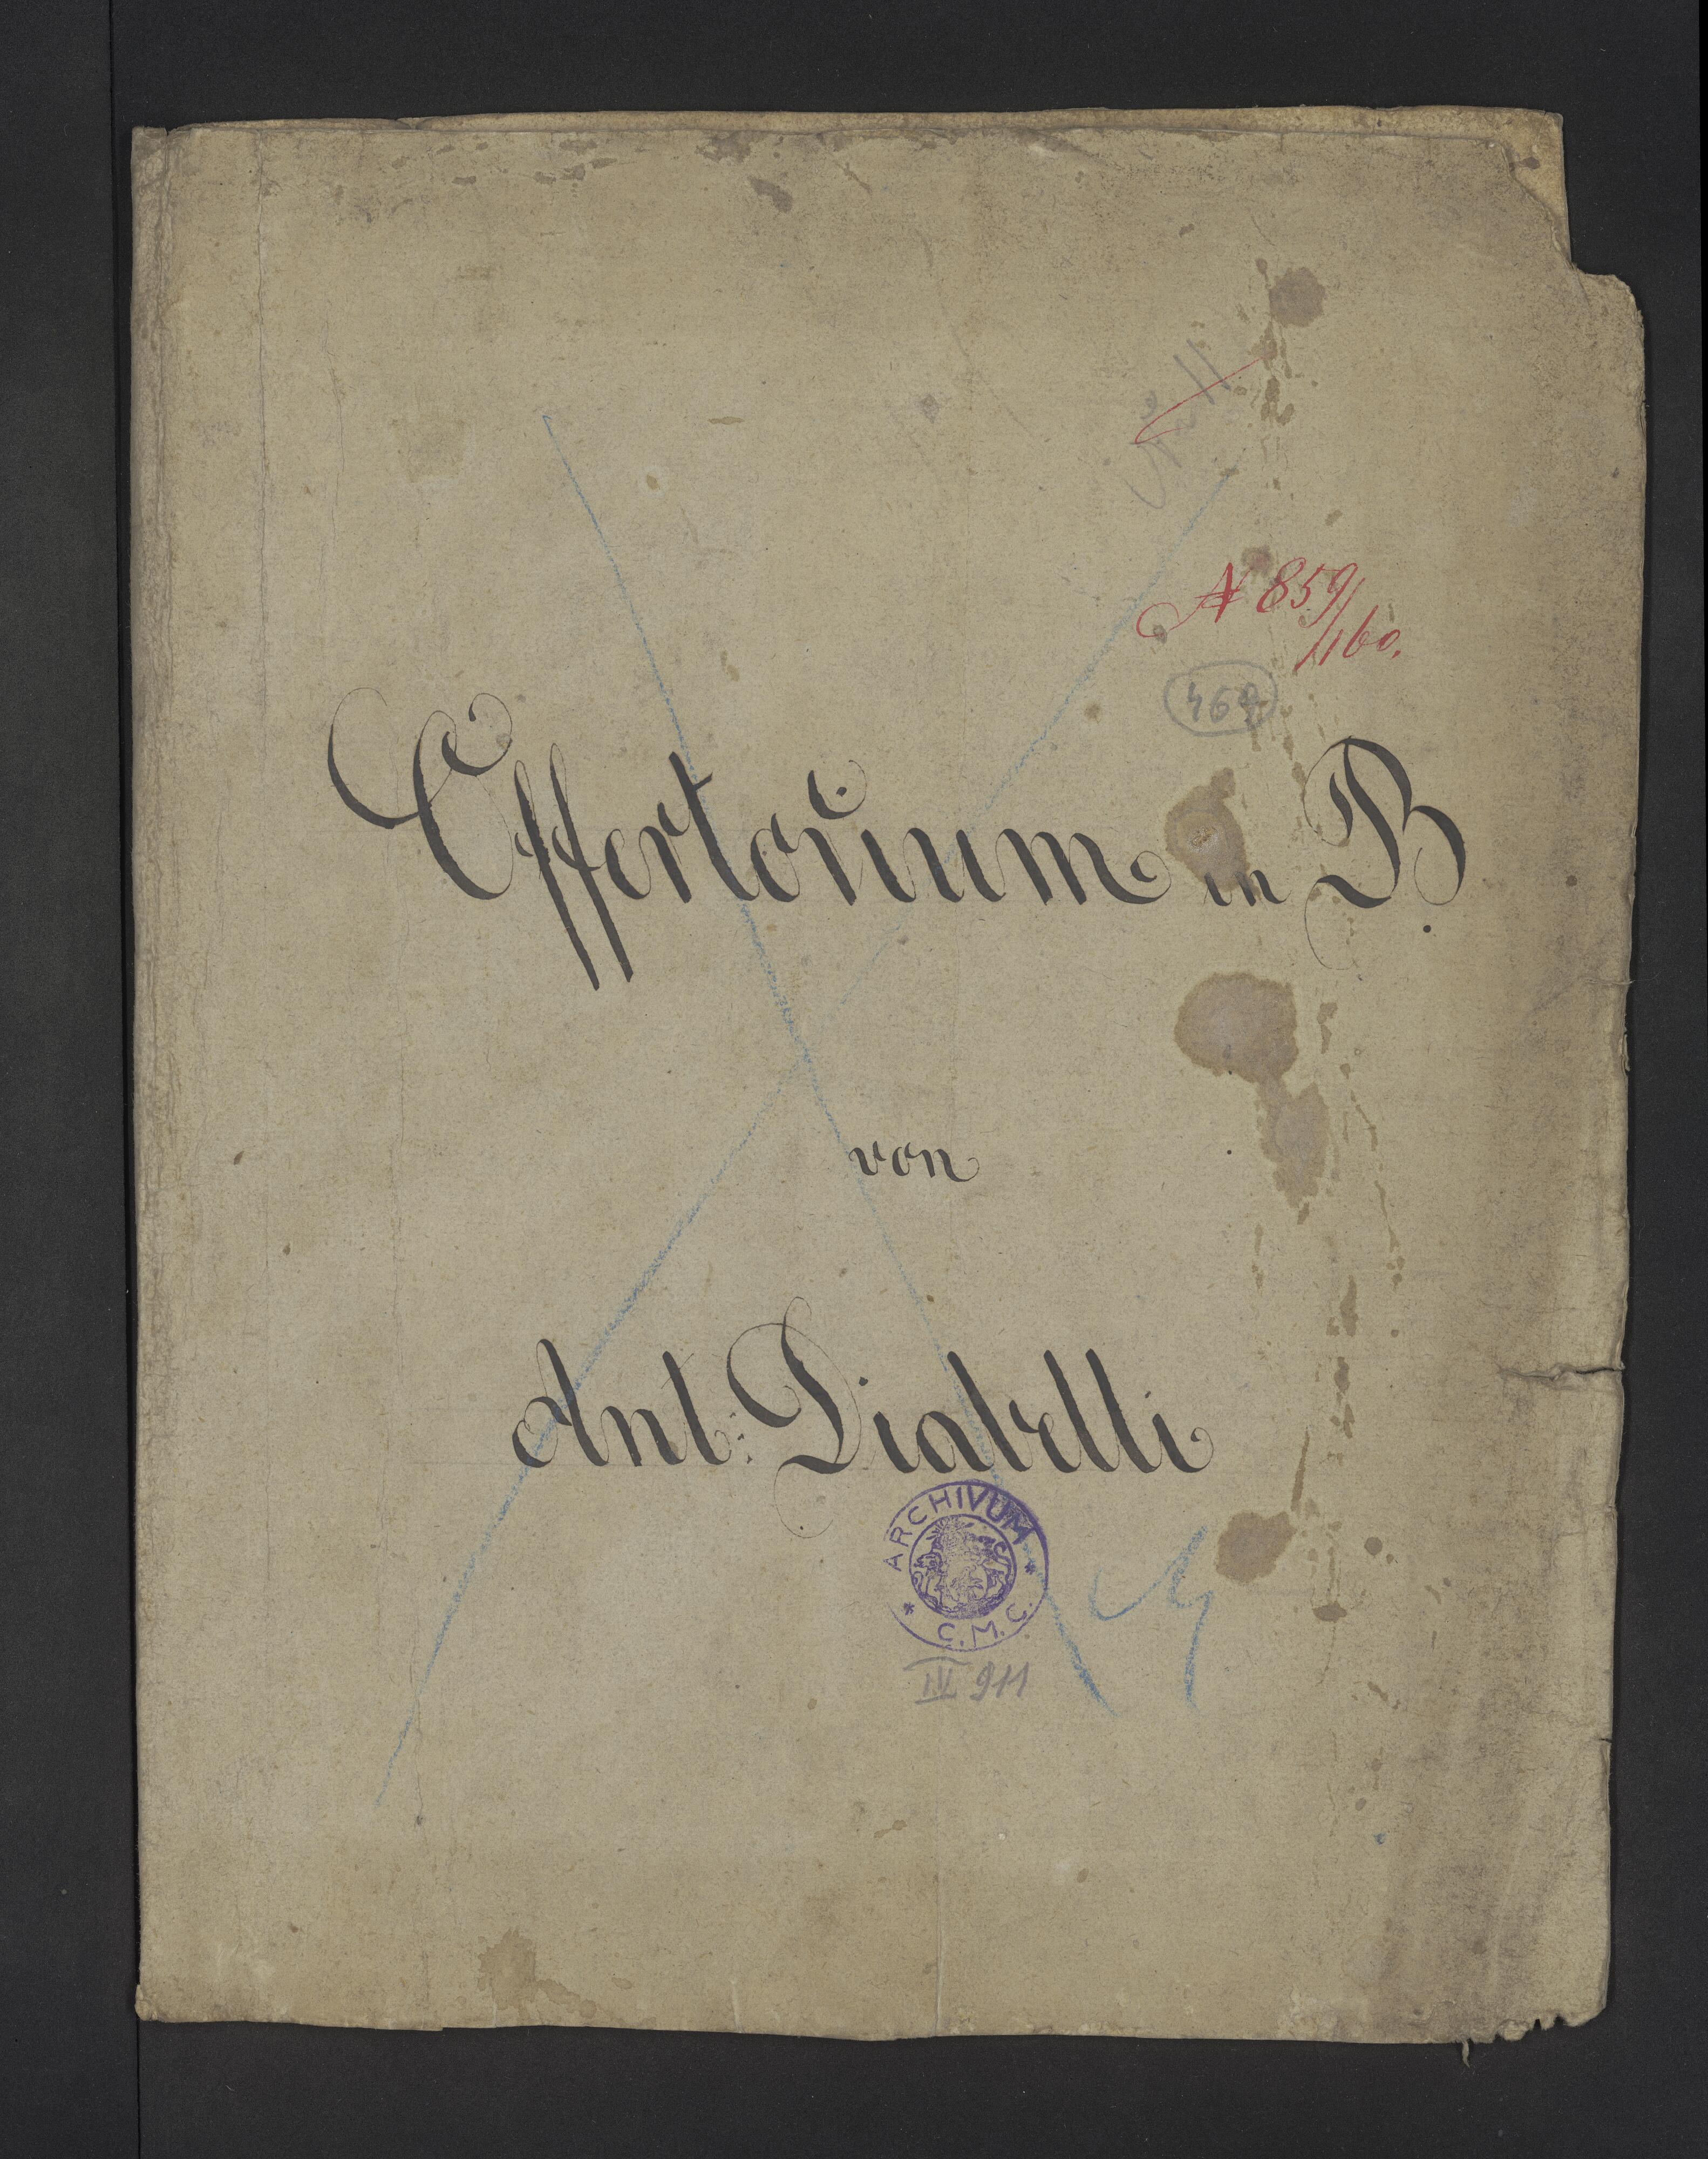 N 859/
/160.
469
Offertorium in B.
von
Ant: Diabelli
ARCHIVUM
C. M. C.
III 911